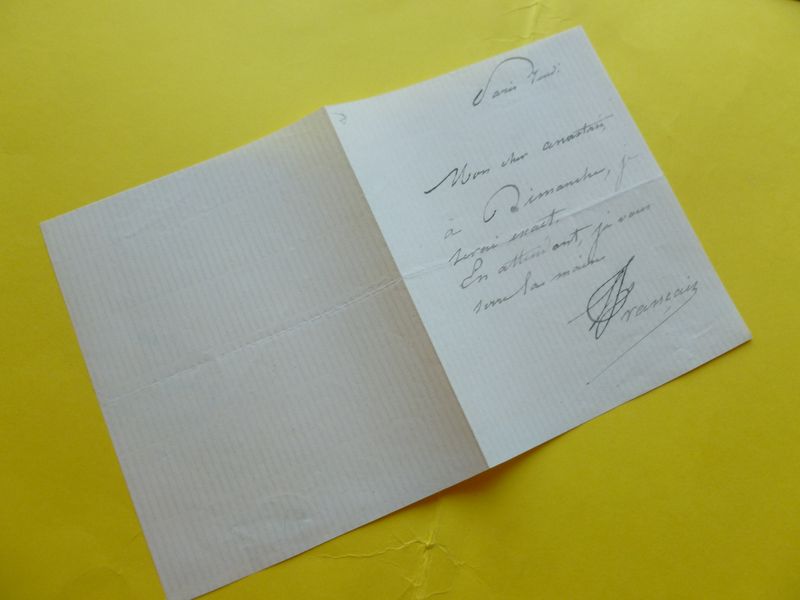 Paris
Mon cher anastasi,
à Dimanche, je
serai exact.
En attendant, je vous
serre la main
Français